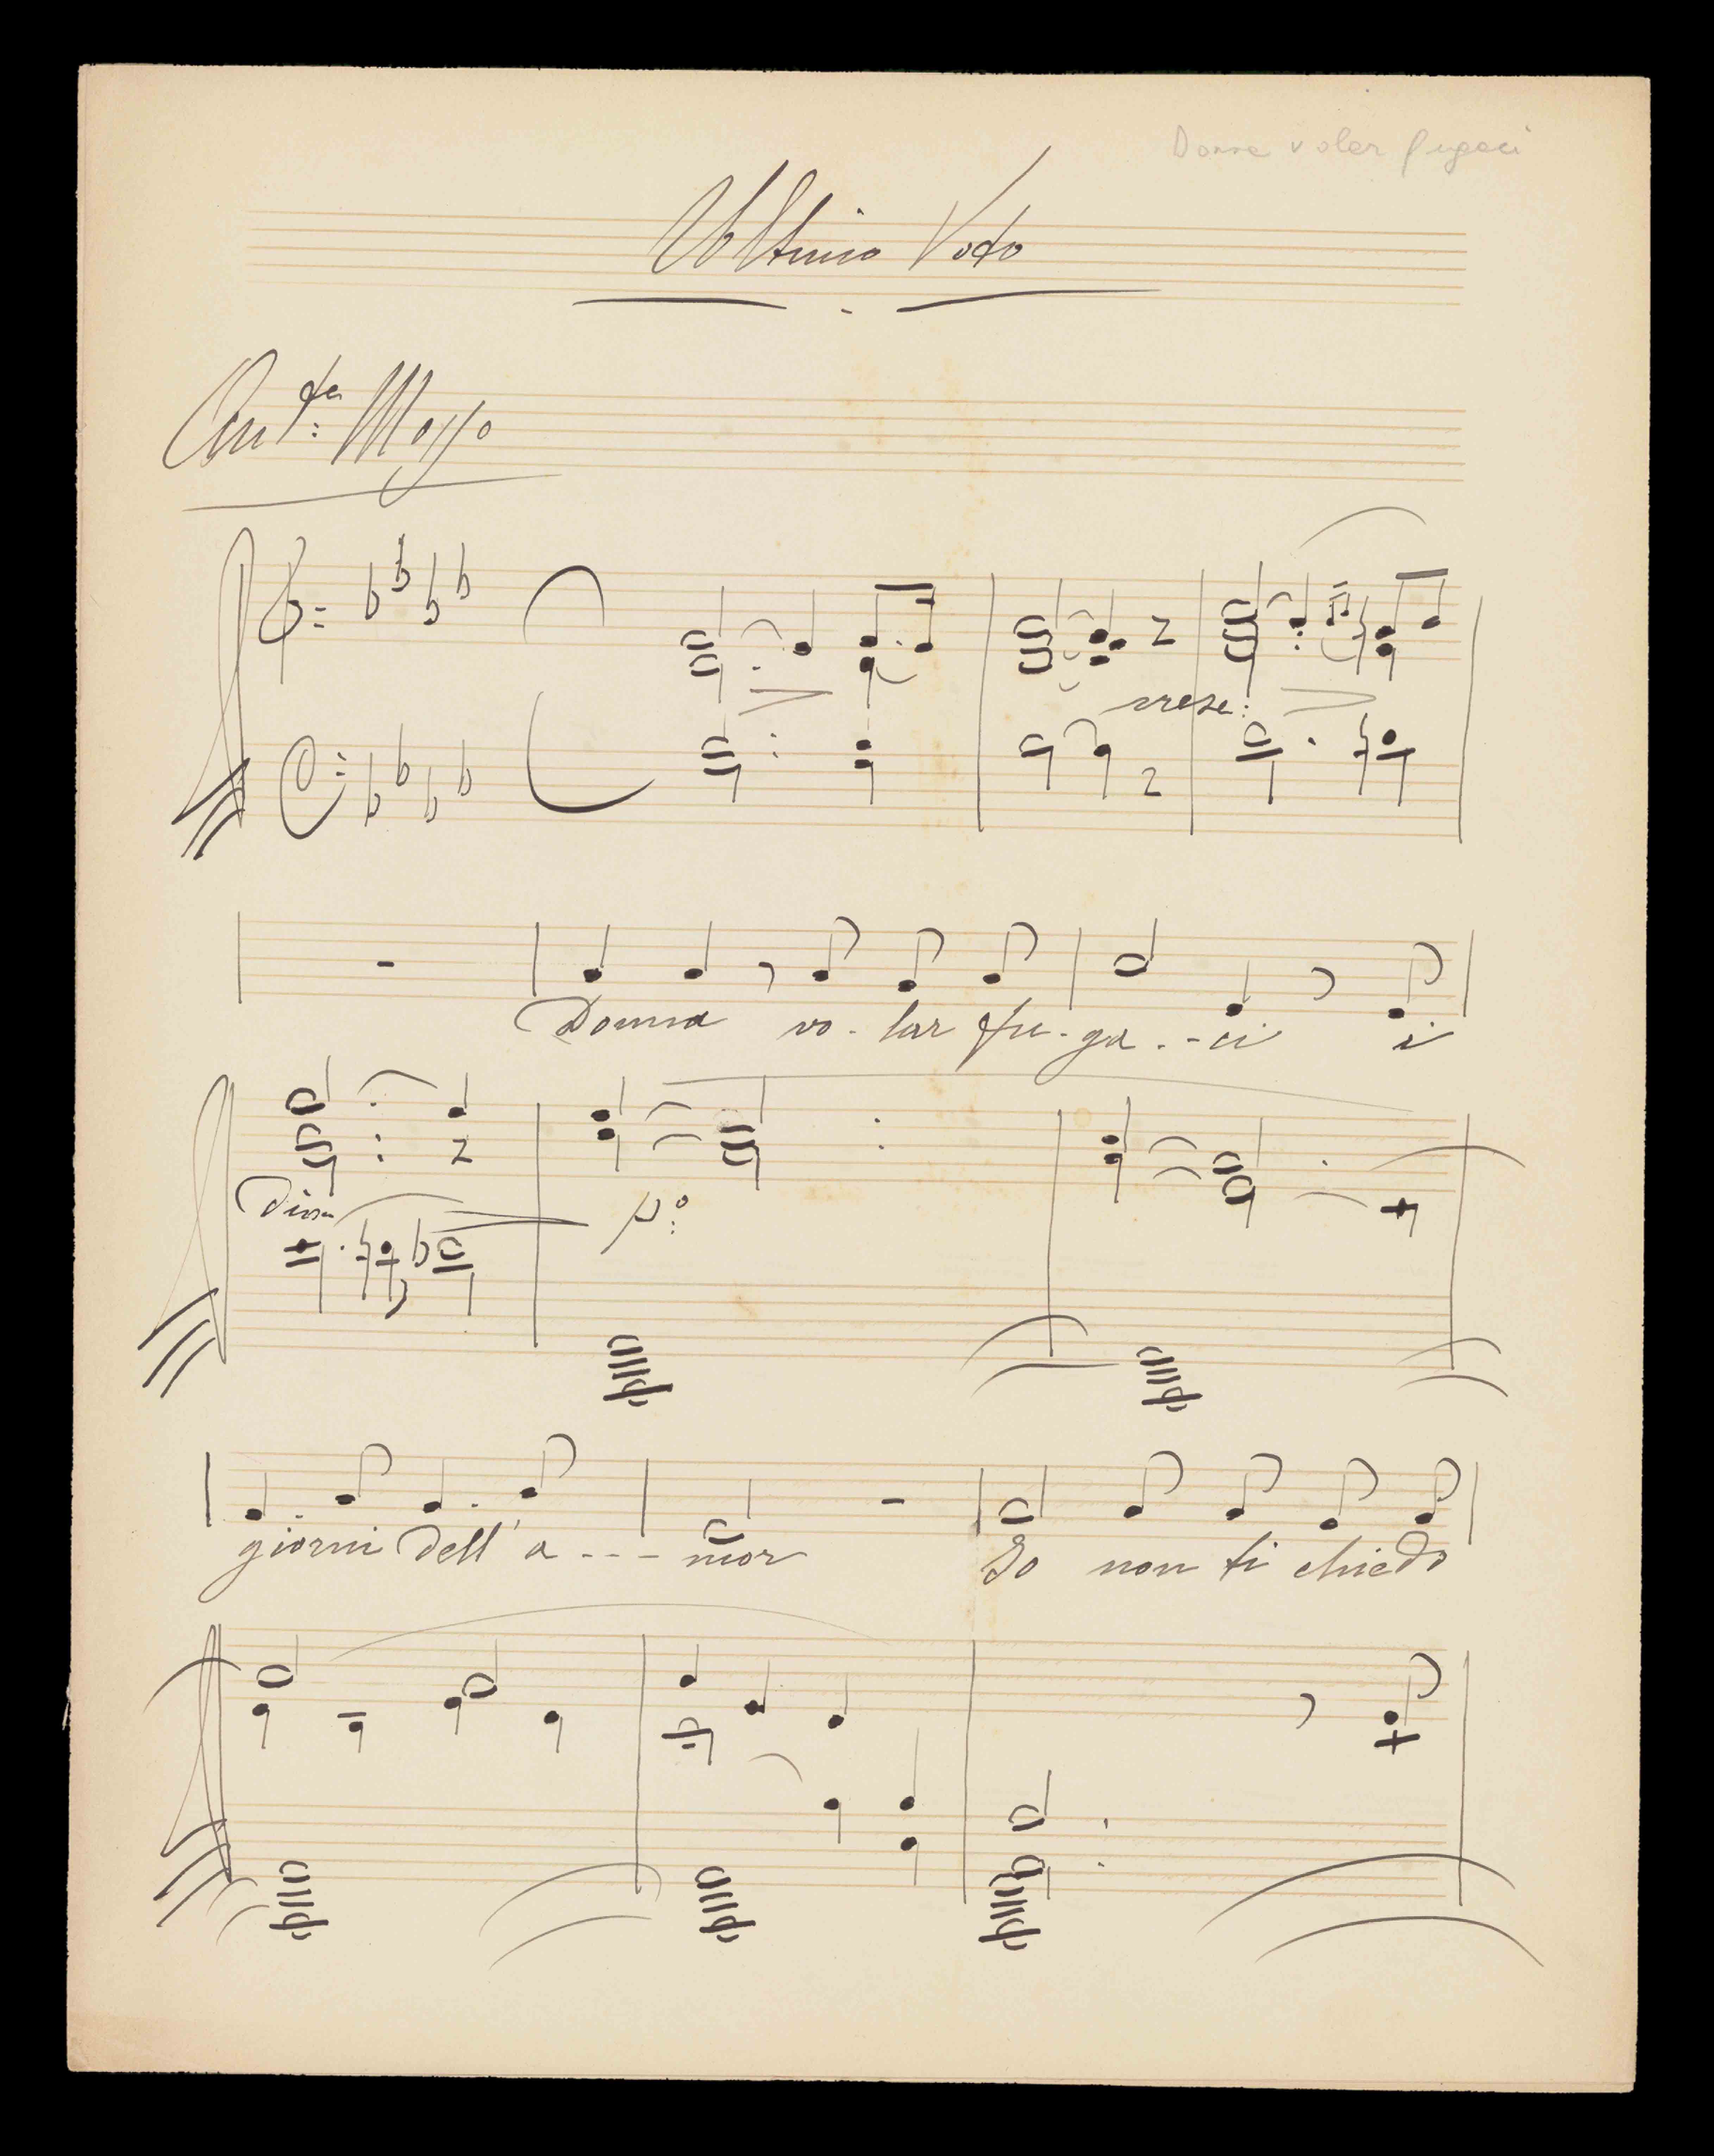 Donna volar fugaci
Ultimo Voto
And.te Mosso
cresc:
Donna vo - lar fu - ga - - ci i
Dim
p.o
giorni dell' a - - - mor Io non ti chiedo